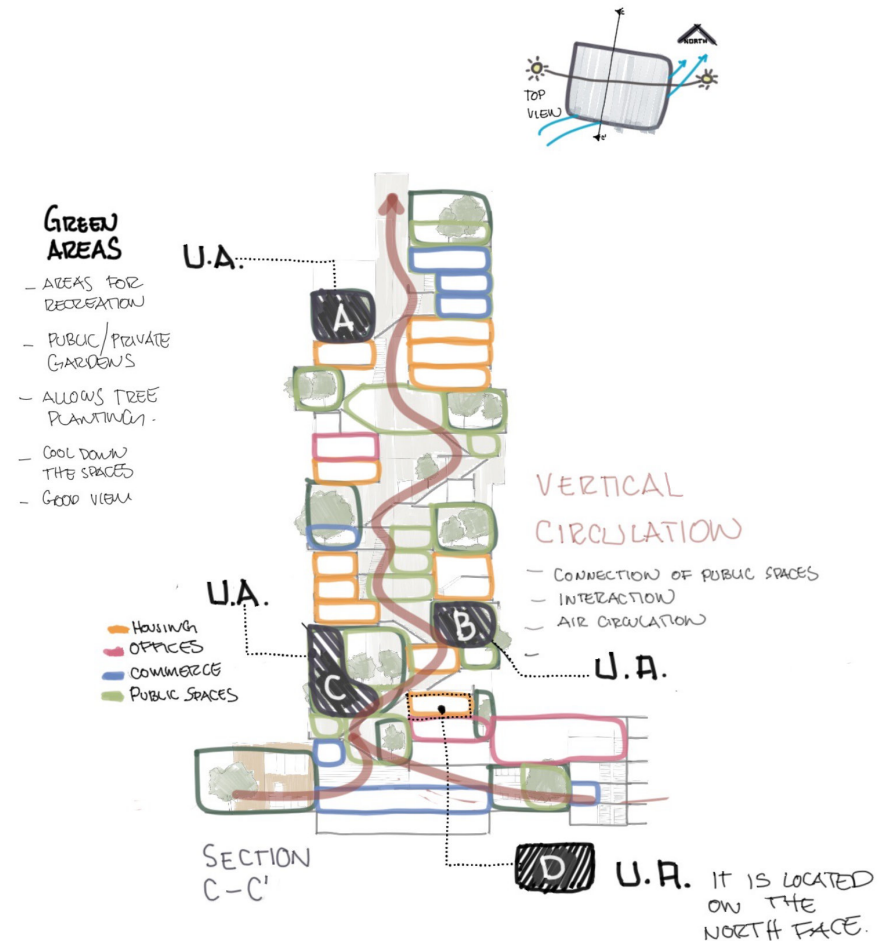 NORTH
TOP
VIEW
C'
GREEN
AREAS
- AREAS FOR
RECREATION
- PUBLIC/PRIVATE
GARDENS
- ALLOWS TREE
PLANTING.
- COOL DOWN
THE SPACES
- GOOD VIEW
U.A.
A
VERTICAL
CIRCULATION
- CONNECTION OF PUBLIC SPACES
- INTERACTION
- AIR CIRCULATION
-
U.A.
B
U.A.
HOUSING
OFFICES
COMMERCE
PUBLIC SPACES
C
SECTION
C-C'
D
U.A.
IT IS LOCATED
ON THE
NORTH FACE.